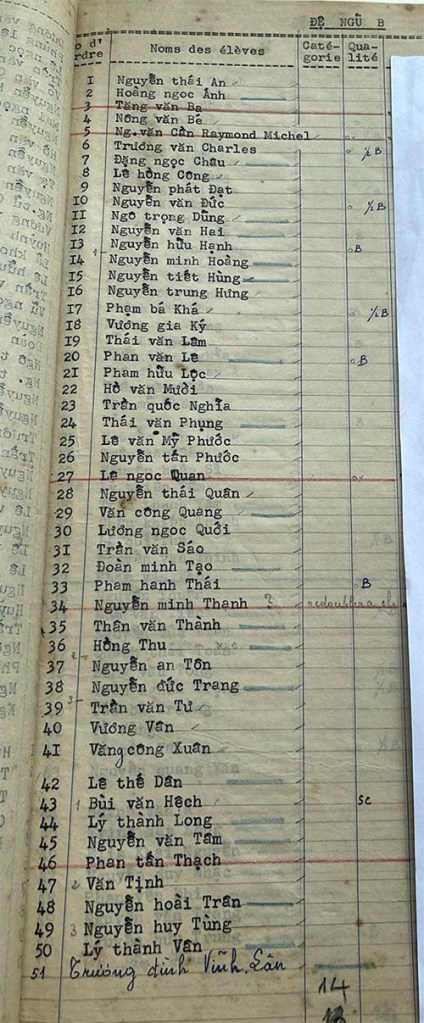 ĐỆ NGŨ B
o d'ordre Noms des élèves Caté-gorie Qua-lité
1 Nguyễn thái An
2 Hoàng ngọc Ánh
3 Tăng văn Ba
4 Nông văn Bé
5 Ng.văn Cần Raymond Michel
6 Trương văn Charles ½ B
7 Đặng ngọc Châu
8 Lê hồng Công
9 Nguyễn phát Đạt
10 Nguyễn văn Đức ½ B
11 Ngô trọng Dũng
12 Nguyễn văn Hai
13 Nguyễn hữu Hạnh B
14 Nguyễn minh Hoàng
15 Nguyễn tiết Hùng
16 Nguyễn trung Hưng
17 Phạm bá Khá ½ B
18 Vương gia Ký
19 Thái văn Lâm
20 Phan văn Lê B
21 Phạm hữu Lộc
22 Hồ văn Mười
23 Trần quốc Nghĩa
24 Thái văn Phụng
25 Lê văn Mỹ Phước
26 Nguyễn tấn Phước
27 Lê ngọc Quan
28 Nguyễn thái Quân
29 Văn công Quang
30 Lương ngọc Quới
31 Trần văn Sáo
32 Đoàn minh Tạo
33 Phạm hanh Thái B
34 Nguyễn minh Thanh ? redoublera
35 Thân văn Thành
36 Hồng Thu
37 Nguyễn an Tôn
38 Nguyễn đức Trang
39 Trần văn Tư
40 Vương Vân
41 Văng công Xuân
42 Lê thế Dân
43 1 Bùi văn Hệch SC
44 Lý thành Long
45 Nguyễn văn Tâm
46 Phan tấn Thạch
47 2 Văn Tịnh
48 Nguyễn hoài Trân
49 3 Nguyễn huy Tùng
50 Lý thành Vân
51 Trương đình Vĩnh Lân
14